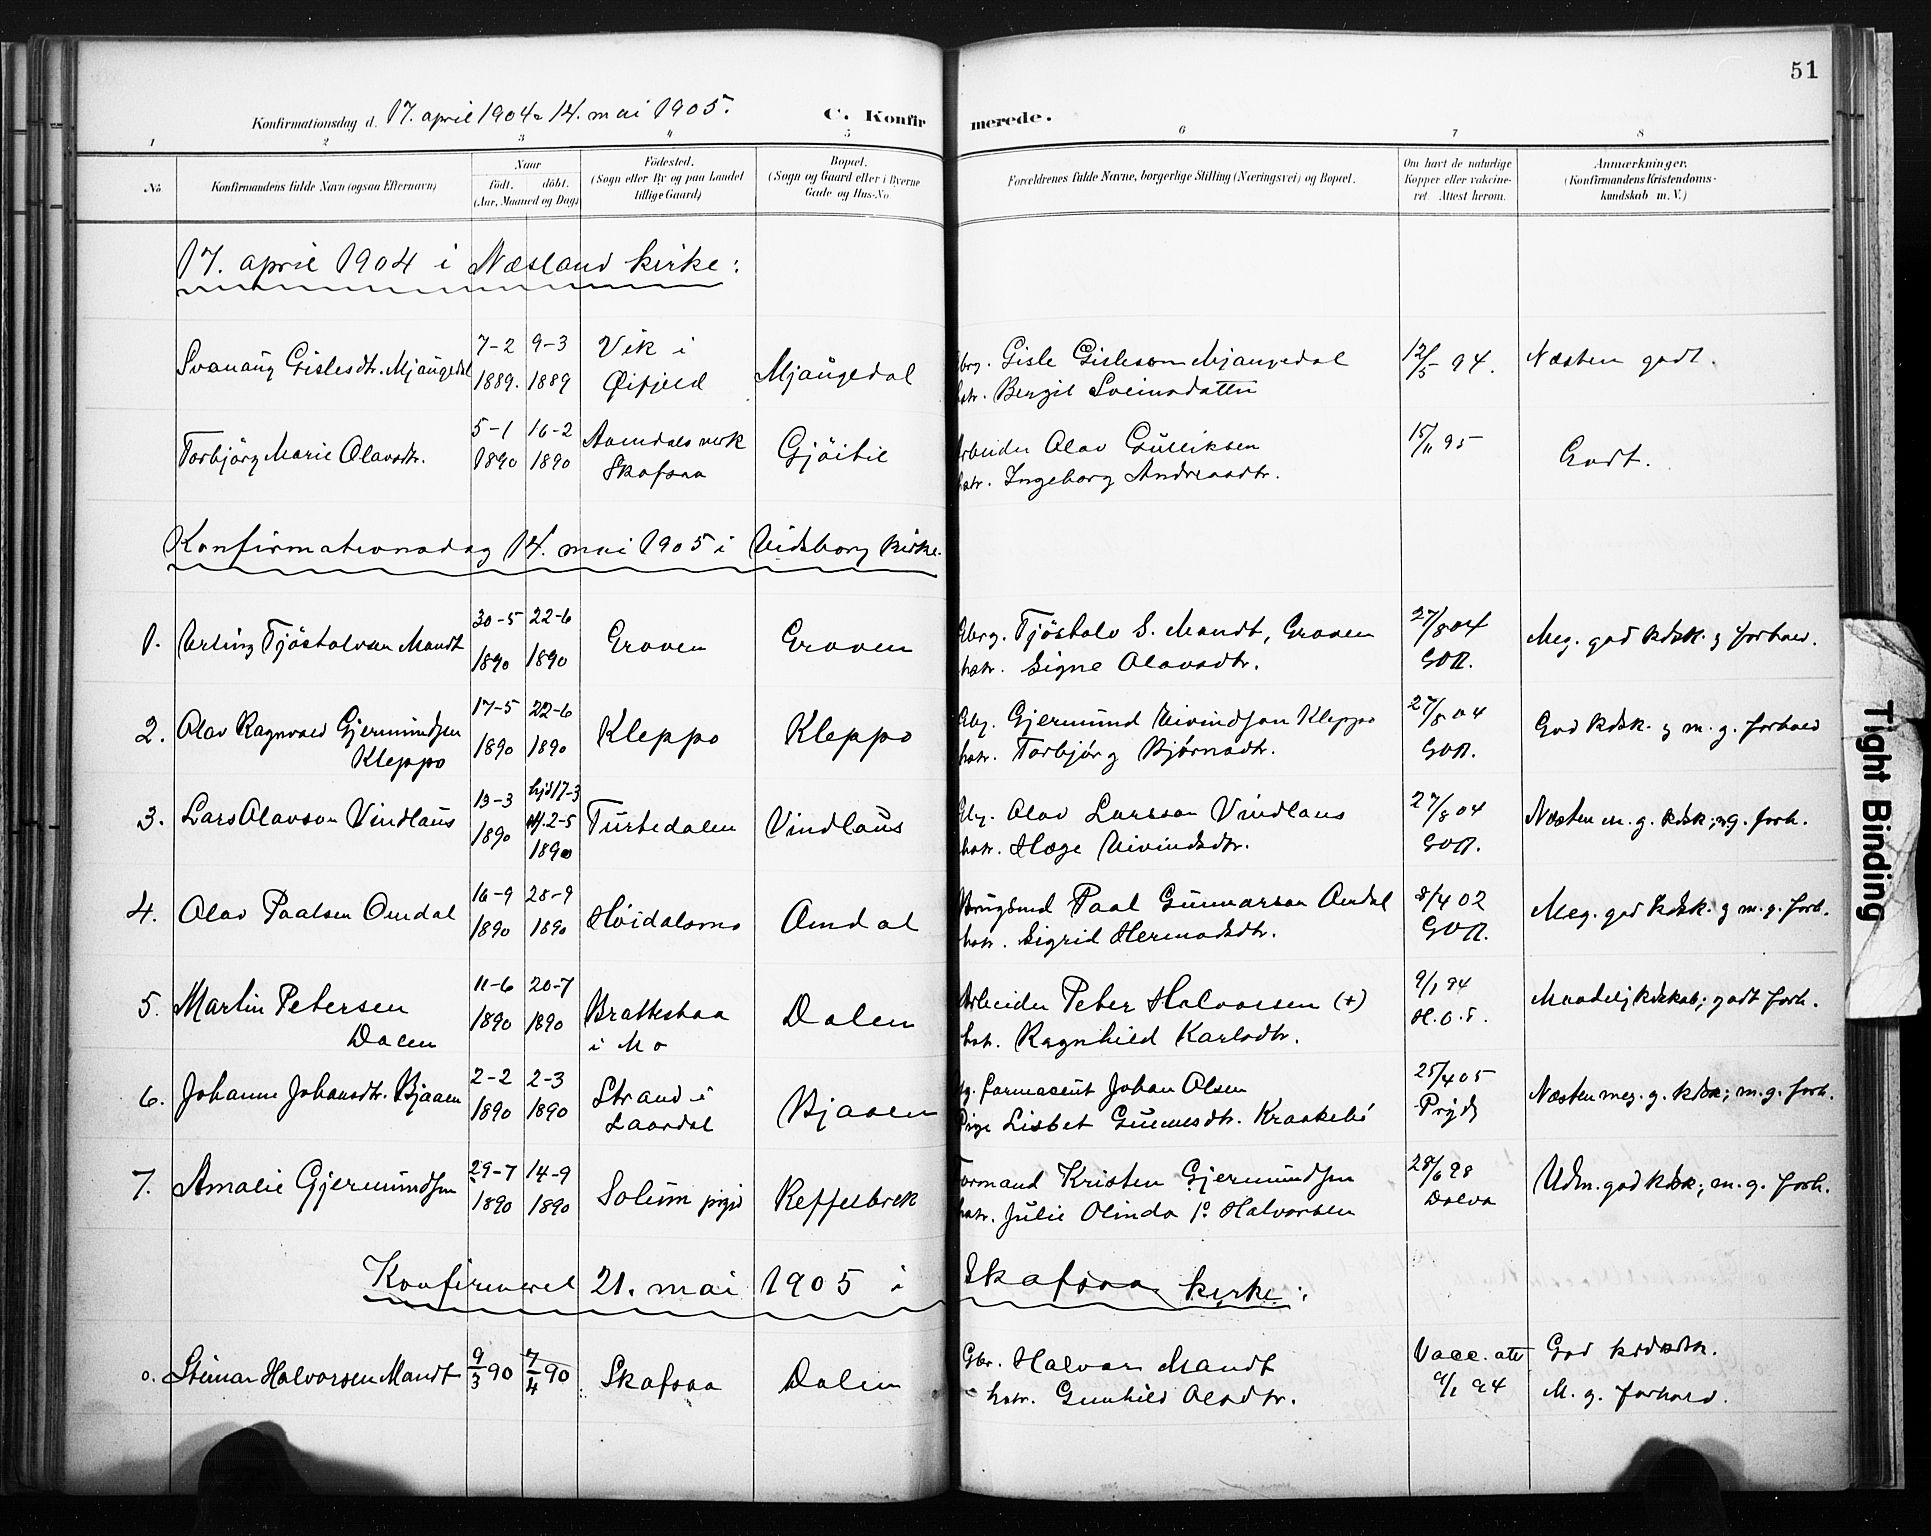 51
Konfirmationsdag d. 17. april 1904 14. mai 1905.
C. Konfirmerede.
1 2 3 4 5 6 7 8
No.
Konfirmandens fulde Navn (ogsaa Efternavn)
Naar
födt. döbt.
(Aar, Maaned og Dag)
Födested.
(Sogn eller By og paa Landet
tillige Gaard)
Bopæl.
(Sogn og Gaard eller i Byerne
Gade og Hus-No.
Forældrenes fulde Navne, borgerlige Stilling (Næringsvei) og Bopæl.
Om havt de naturlige
Kopper eller vakcine-
ret. Attest herom.
Anmærkninger.
(Konfirmandens Kristendoms-
kundskab m. V.)
17. april 1904 i Næsland kirke:
Svanaug Gislesdtr. Mjaugedal
7-2 1889. 9-3 1889
Vik i
Øifjeld
Mjaugedal
Gisle Gisleson Mjaugedal
Bergit Sveinsdatter
12/5 94.
Næsten godt.
Torbjörg Marie Olavsdtr.
5-1 1890 16-2 1890
Aamdals verk
Skafsaa
Gjöitil
Arbeider Olav Gulliksen
hstr. Ingeborg Andreasdtr.
15/11 95
Godt.
Konfirmationsdag 14. mai 1905 i Vidsborg kirke.
1. Erling Tjöstolvsen Mandt
30-5 1890 22-6 1890
Groven
Groven
Gbrg. Tjöstolv S. Mandt, Groven
hstr. Signe Olavsdtr.
27/8 04
Meg. god kdsk. g forhold.
2. Olav Ragnvald Gjermundsen
Kleppo
17-5 1890 22-6 1890
Kleppo
Kleppo
Gbg. Gjermund Eivindson Kleppo
hstr. Torbjørg Bjørnsdtr.
27/8 04
God kdsk. g m. g. forhold
3. Lars Olavson Vindlaus
13-3 1890 hjd 17-3
2-5 1890
Turtedalen
Vindlaus
Gbg. Olav Larsson Vindlaus
hstr. Hæge Eivindsdtr.
27/8 04
Næsten m. g. kdsk; m g. forh.
4. Olav Paalsen Omdal
16-9 1890 28-9 1890
Høidalsmo
Omdal
Brugsmd Paal Gunnarson Omdal
hstr. Sigrid Hermodsdtr.
8/4 02
Meg. god kdsk. g m. g. forh.
5. Martin Petersen
Dalen
11-6 1890 20-7 1890
Brattestaa
i Mo
Dalen
Arbeider Peter Halvorsen (+)
hstr. Ragnhild Karlsdtr.
9/1 94
Maadelig kdskab; godt forh.
6. Johanne Johansdtr. Bjaaen
2-2 1890 2-3 1890
Strand i
Laardal
Bjaaen
Ug. farmaceut Johan Olsen
Pige Lisbet Gunnesdtr. Kraakeli
25/4 05
Prydz
Næsten meg. g. kdsk; m. g. forh.
7. Amalie Gjermundsen
29-7 1890 14-9 1890
Solum prgjd
Reffelbrek
Formand Kristen Gjermundsen
hstr. Julie Olinda f. Halvorsen
28/6 98
Dalva
Udm. god kdsk; m. g. forh.
Konfirmeret 21. mai 1905 i Skafsaa kirke:
Steinar Halvorsen Mandt
9/3 90 7/4 90
Skafsaa
Dalen
Gbr. Halvor Mandt
hstr. Gunhild Olsdtr.
Vacc. att
9/1 94
God kdsk.
M. g. forhold.
Tight Binding